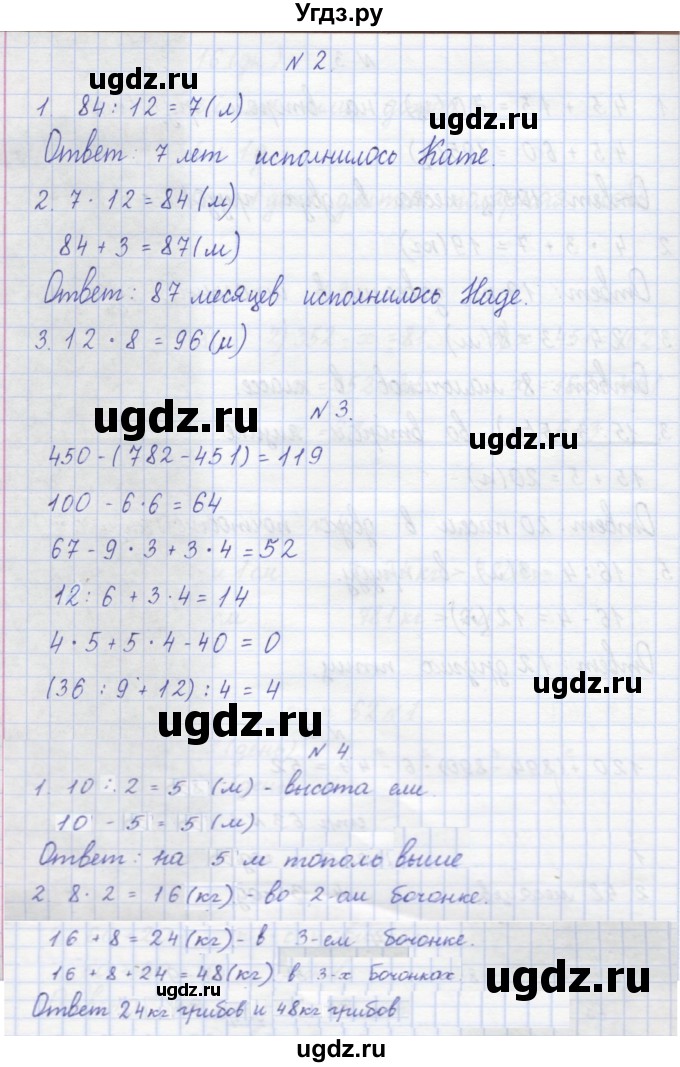 Угдз.ру
№ 2.
1. 84 : 12 = 7 (л)
Ответ: 7 лет исполнилось Кате.
2. 7 · 12 = 84 (м)
84 + 3 = 87 (м)
Ответ: 87 месяцев исполнилось Наде.
3. 12 · 8 = 96 (м)
№ 3.
450 - (782 - 451) = 119
100 - 6 · 6 = 64
67 - 9 · 3 + 3 · 4 = 52
12 : 6 + 3 · 4 = 14
4 · 5 + 5 · 4 - 40 = 0
(36 : 9 + 12) : 4 = 4
№ 4
1. 10 : 2 = 5 (м) - высота ели.
10 - 5 = 5 (м)
Ответ: на 5 м тополь выше
2. 8 · 2 = 16 (кг) - во 2-ом бочонке.
16 + 8 = 24 (кг) - в 3-ем бочонке.
16 + 8 + 24 = 48 (кг) в 3-х бочонках
Ответ 24 кг грибов и 48 кг грибов
ugdz.ru
ugdz.ru
ugdz.ru
ugdz.ru
ugdz.ru
ugdz.ru
ugdz.ru
ugdz.ru
ugdz.ru